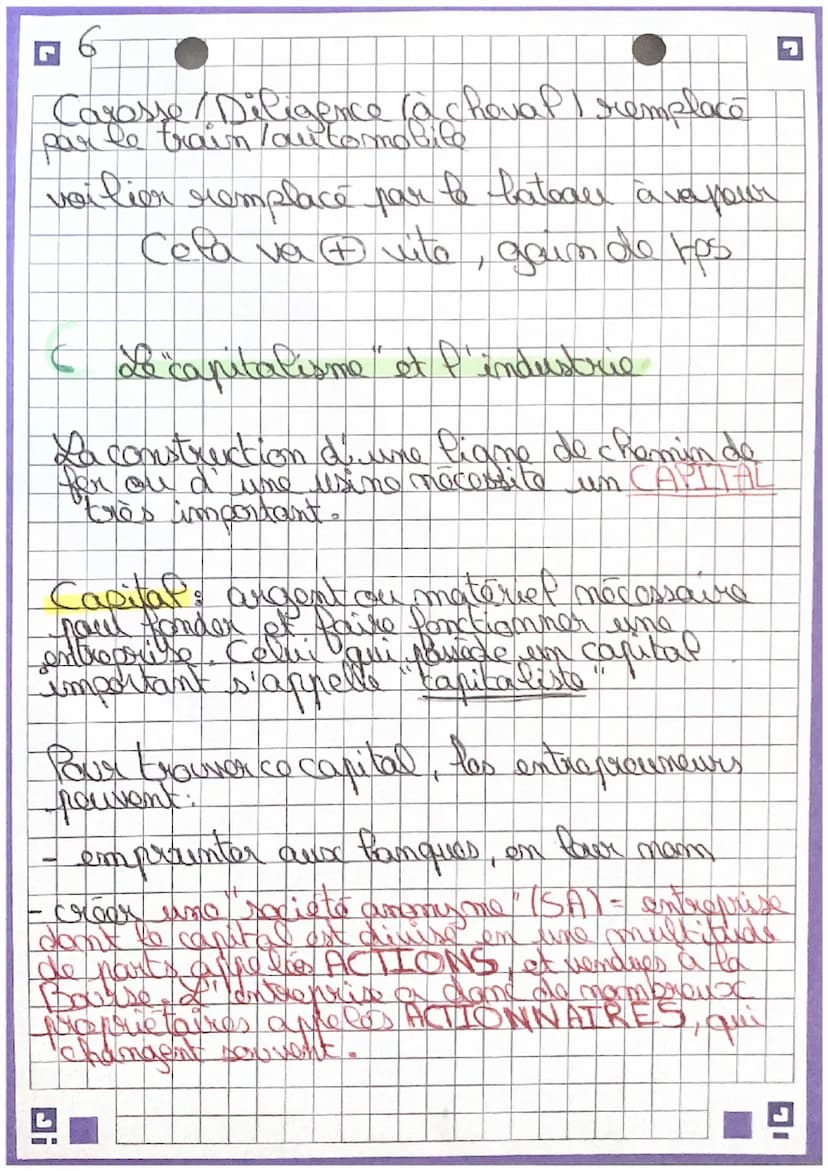 6
Carosse/Diligence (à cheval) remplacé
par le train/automobile
voilier remplacé par le bateau à vapeur
Cela va + vite, gain de tps
C Le "capitalisme" et l'industrie
La construction d'une ligne de chemin de
fer ou d'une usine nécessite un CAPITAL
très important.
Capital: argent ou matériel nécessaire
pour fonder et faire fonctionner une
entreprise. Celui qui possède un capital
important s'appelle "capitaliste"
Pour trouver ce capital, les entrepreuneurs
peuvent:
- emprunter aux banques, en leur nom
- créer une "société anonyme" (SA) = entreprise
dont le capital est divisé en une multitude
de parts appelées ACTIONS, et vendues à la
Bourse. L'entreprise a donc de nombreux
propriétaires appelés ACTIONNAIRES, qui
changent souvent.